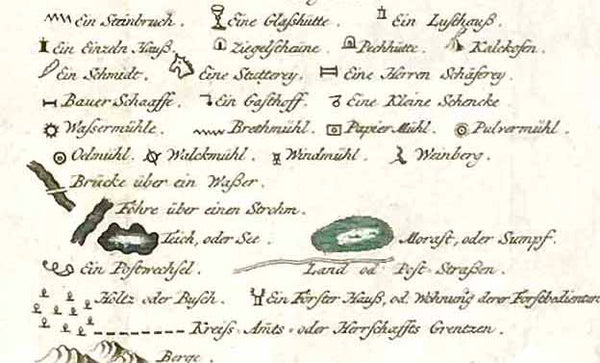 Ein Steinbruch. Eine Glaßhütte. Ein Lusthauß.
Ein Einzeln Hauß. Ziegelscheine. Pechhütte. Kalckofen.
Ein Schmidt. Eine Stutterey. Eine Herren Schäferey.
Bauer Schaafft. Ein Gasthoff. Eine Kleine Schencke
Wassermühle. Brethmühl. Papier Mühl. Pulvermühl.
Oelmühl. Walckmühl. Windmühl. Weinberg.
Brücke über ein Waßer.
Föhre über einen Strohm.
Teich, oder See. Morast, oder Sumpf.
Ein Postwechsel. Land od. Post-Straßen.
Höltz oder Busch. Ein Förster Hauß, od. Wohnung derer Forstbedienten
Kreiss-Amts-oder Herrschaffts Grentzen.
Berge.